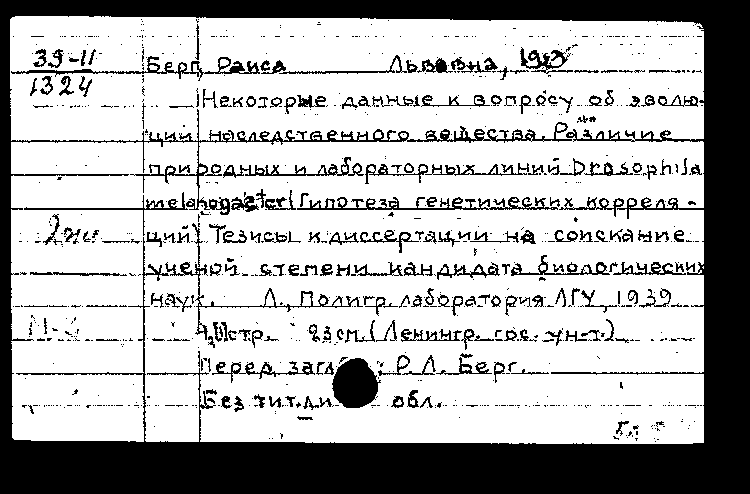 39-11
1324
Берг, Раиса Львовна, 1913
Некоторые данные к вопросу об эволю-
ции наследственного вещества. Различие
природных и лабораторных линий Drosophila
melanogaster (Гипотеза генетических корреля-
2 экз ций) Тезисы к диссертации на соискание
ученой степени кандидата биологических
наук. Л., Полигр. лаборатория ЛГУ, 1939
стр. 23 см. (Ленингр. гос. ун-т.)
Перед загл.: Р. Л. Берг.
Без тит. ли обл.